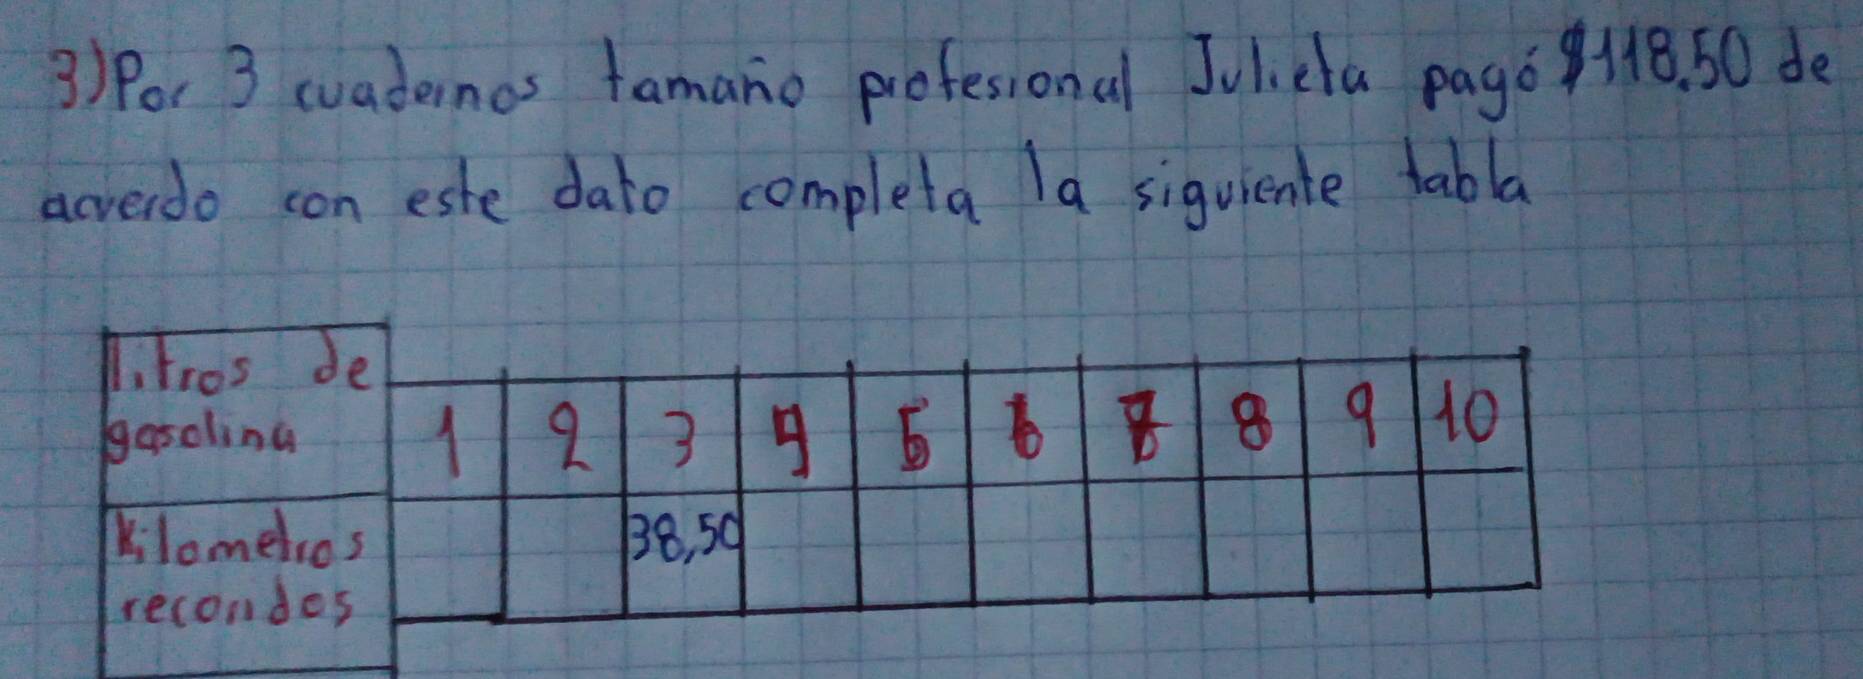 3) Por 3 cuadernos tamaño profesional Julieta pagó $118.50 de
acuerdo con este dato completa la siguiente tabla
litros de
gasolina 1 2 3 4 5 6 7 8 9 10
Kilometros
recorridos 38,50